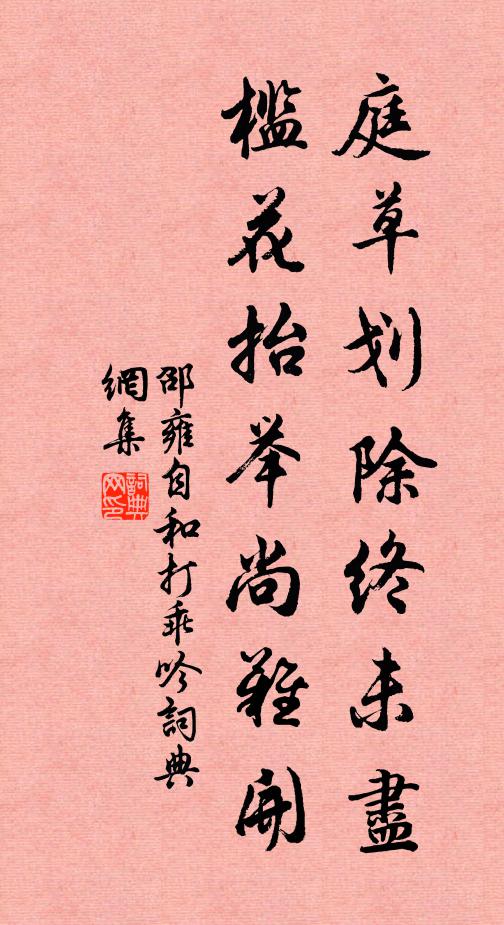 庭草划除终未盡
檻花抬举尚難開
邵雍自和打乖吟詞典
網集
詞典
网印